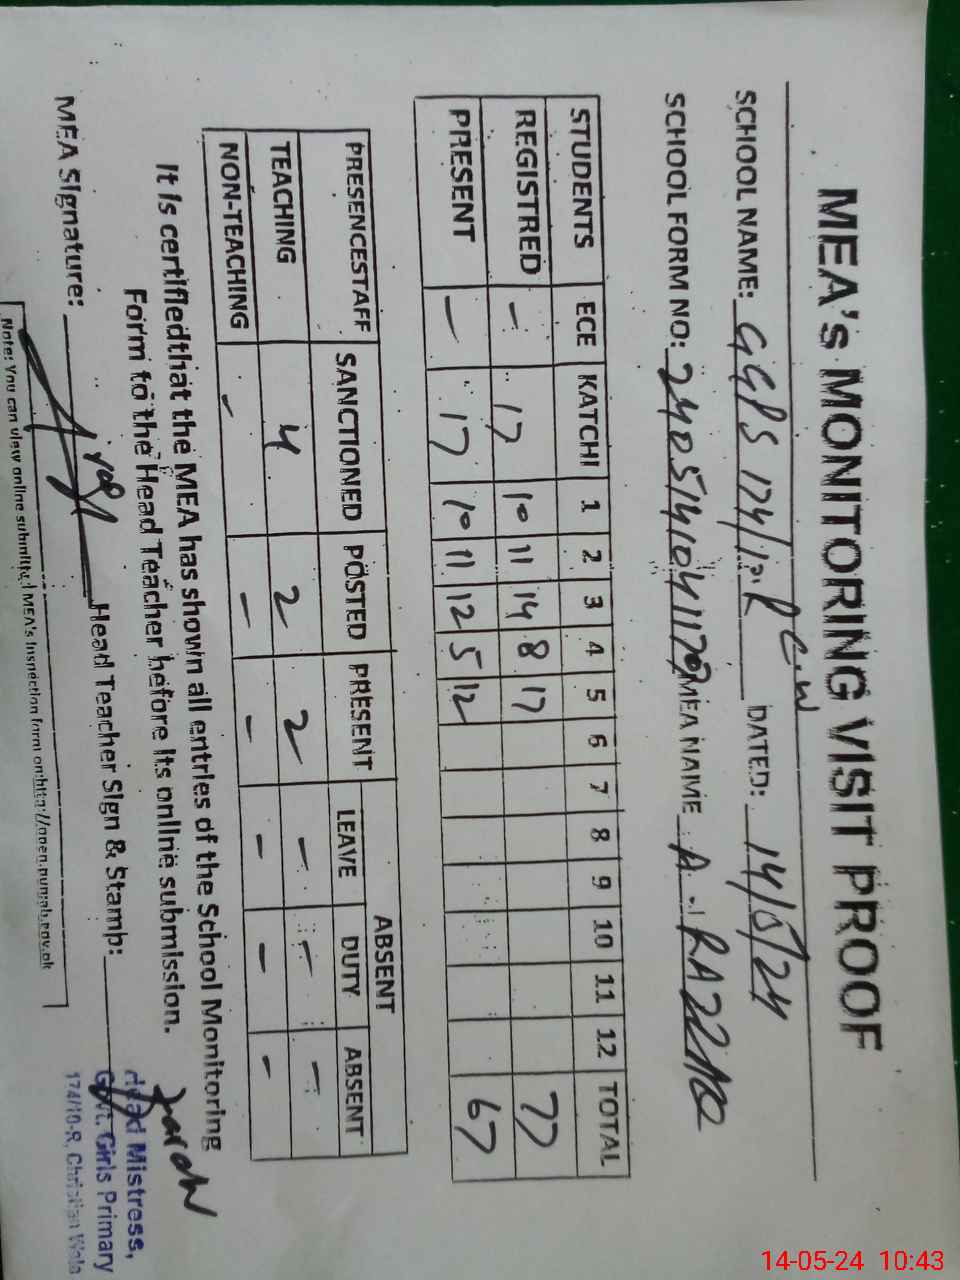 MEA's MONITORING VISIT PROOF
SCHOOL NAME: GGPS 174/10.R C.W DATED: 14/5/24
SCHOOL FORM NO: MEA NAME A.
STUDENTS ECE KATCHI 1 2 3 4 5 6 7 8 9 10 11 12 TOTAL
REGISTRED - 17 10 11 14 8 17 77
PRESENT - 17 10 11 12 5 12 67
PRESENCESTAFF SANCTIONED POSTED PRESENT ABSENT
LEAVE DUTY ABSENT
TEACHING 4 2 2 - - -
NON-TEACHING - - - - - -
It is certifiedthat the MEA has shown all entries of the School Monitoring
Form to the Head Teacher before its online submission.
MEA Signature: Head Teacher Sign & Stamp:
Head Mistress,
Govt. Girls Primary
174/10-R, Christian Wala
Note: You can view online submitted MEA's Inspection form on:http://open.punjab.gov.pk
14-05-24 10:43